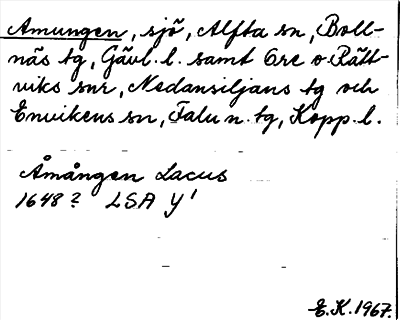 Amungen, sjö, Alfta sn, Boll-
näs tg, Gävl. l. samt Ore o Rätt-
viks snr, Nedansiljans tg och
Envikens sn, Falu n. tg, Kopp. l.
Åmången Lacus
1648? LSA Y'
E.K. 1967.